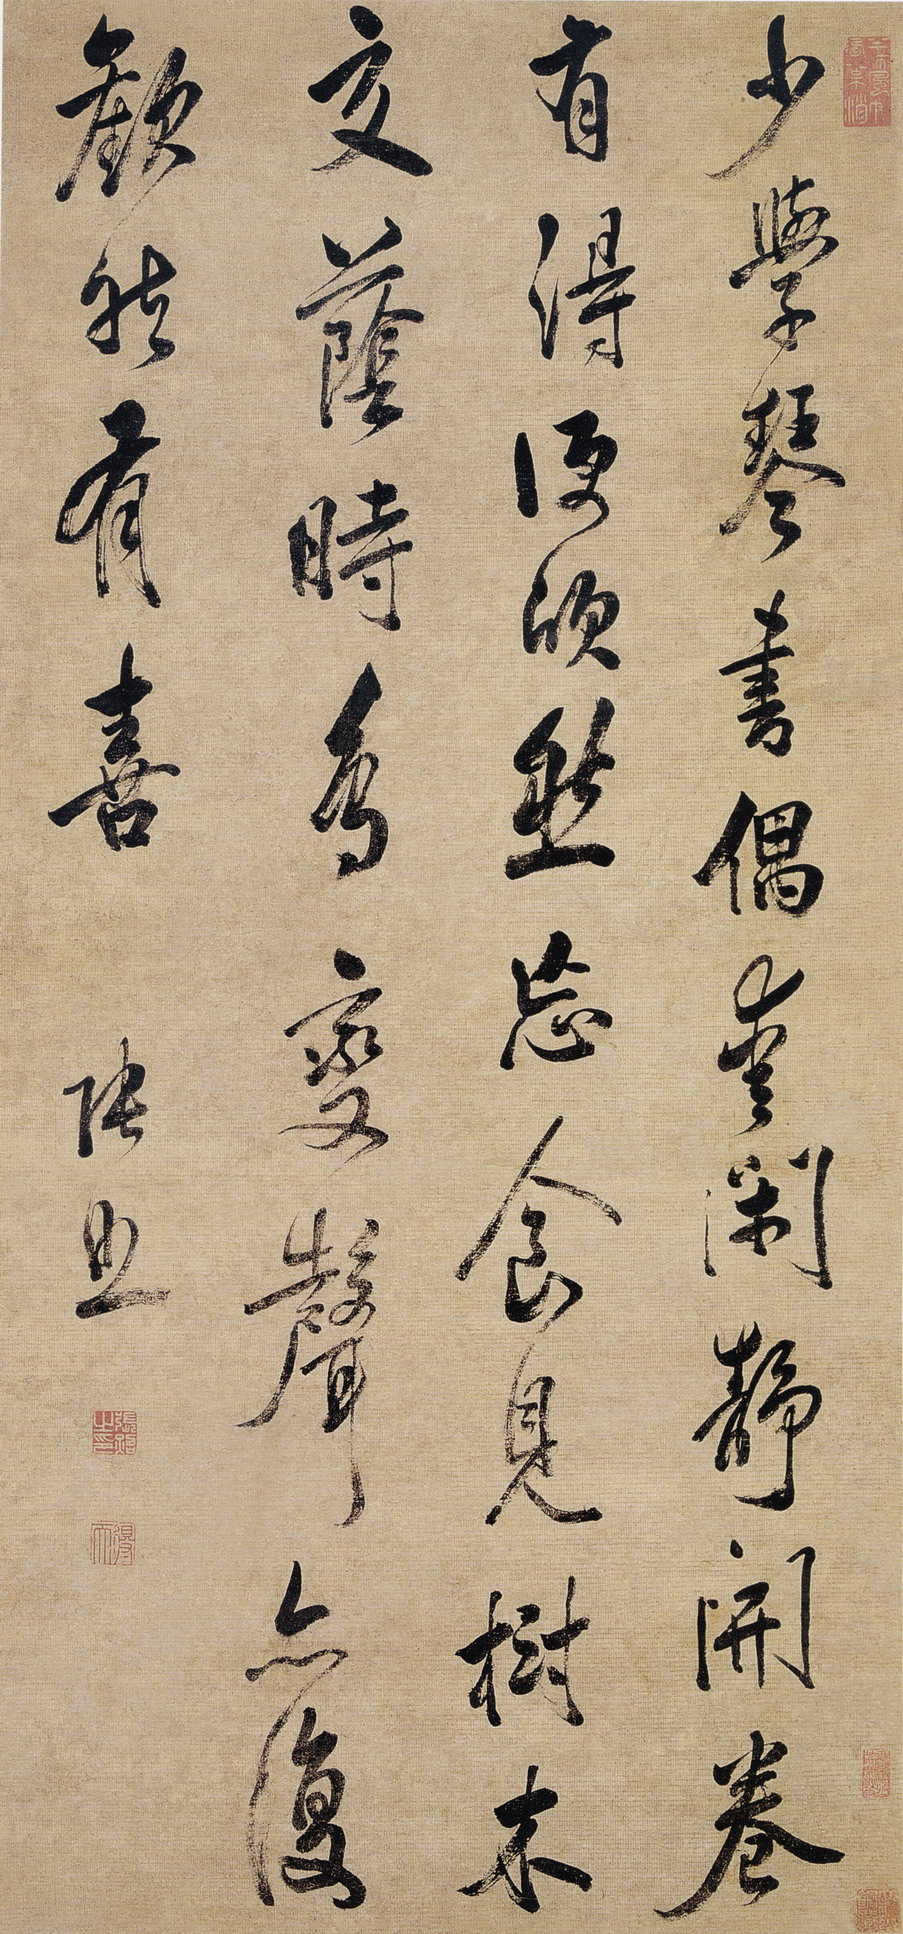 少學琴書偶愛閑靜開卷
有得便欣然忘食見樹木
交蔭時鳥變聲亦復
歡然有喜 張照
張照之印
得天